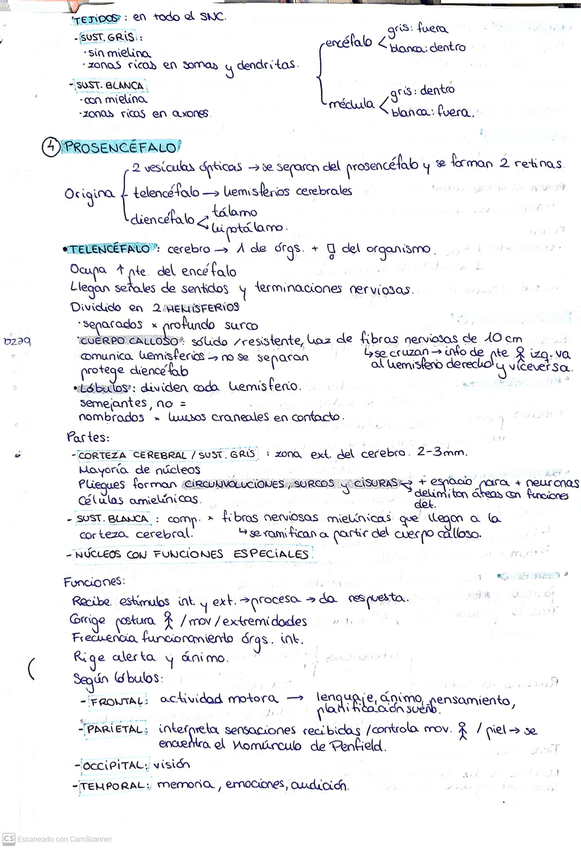 TEJIDOS: en todo el SNC.
- SUST. GRIS:
· sin mielina
· zonas ricas en somas y dendritas.
- SUST. BLANCA
· con mielina
· zonas ricas en axones.
encéfalo < gris: fuera
blanca: dentro
médula < gris: dentro
blanca: fuera.
④ PROSENCÉFALO
Origina
2 vesículas ópticas → se separan del prosencéfalo y se forman 2 retinas.
telencéfalo → hemisferios cerebrales
diencéfalo < tálamo
hipotálamo.
• TELENCÉFALO: cerebro → 1 de órgs. + ! del organismo.
Ocupa ↑ pte. del encéfalo
Llegan señales de sentidos y terminaciones nerviosas.
Dividido en 2 HEMISFERIOS
· separados × profundo surco
CUERPO CALLOSO: sólido / resistente, haz de fibras nerviosas de 10 cm
comunica hemisferios → no se separan
↳ se cruzan → info de pte izq. va
al hemisferio derecho y viceversa.
protege diencéfalo
• Lóbulos: dividen cada hemisferio.
semejantes, no =
nombrados × huesos craneales en contacto.
Partes:
- CORTEZA CEREBRAL / SUST. GRIS: zona ext. del cerebro. 2-3mm.
Mayoría de núcleos
Pliegues forman CIRCUNVOLUCIONES, SURCOS y CISURAS → + espacio para + neuronas
delimitan áreas con funciones
det.
Células amielínicas.
- SUST. BLANCA: comp. × fibras nerviosas mielínicas que llegan a la
corteza cerebral. ↳ se ramifican a partir del cuerpo calloso.
- NÚCLEOS CON FUNCIONES ESPECIALES
Funciones:
Recibe estímulos int. y ext. → procesa → da respuesta.
Corrige postura / mov / extremidades
Frecuencia funcionamiento órgs. int.
Rige alerta y ánimo.
Según lóbulos:
- FRONTAL: actividad motora → lenguaje, ánimo, pensamiento,
planificación sueño.
- PARIETAL: interpreta sensaciones recibidas / controla mov. / piel → se
encuentra el Homúnculo de Penfield.
- OCCIPITAL: visión
- TEMPORAL: memoria, emociones, audición.
CS Escaneado con CamScanner